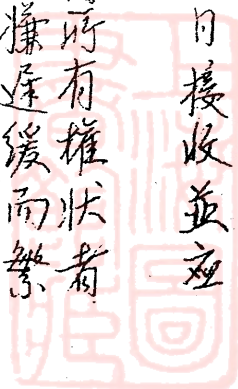 日接收並应
所有權状者
嫌遲缓而繁